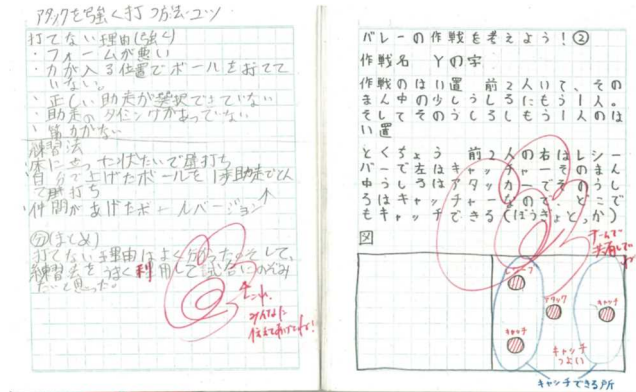 アタックを強く打つ方法・コツ
打てない理由(強く)
・フォームが悪い
・力が入る位置でボールを打てて
いない。
・正しい助走が選択できていない
・助走のタイミングがあっていない
・筋力がない
練習法
床に立った状たいで壁打ち
自分で上げたボールを1歩助走でとん
で壁打ち
仲間があげたボールバージョン
(まとめ)
打てない理由はよく分かった。そして、
練習法をうまく利用して試合にのぞみ
たいと思った。
これ、
みんなに
伝えてあげてね!
バレーの作戦を考えよう!②
作戦名 Yの字
作戦のはい置 前2人いて、その
まん中の少しうしろにもう1人。
そしてそのうしろにもう1人のは
い置
とくちょう 前2人の右はレシー
バーで左はキャッチャーそのまん
中うしろはアタッカーでそのうし
ろはキャッチャーなので、どこで
もキャッチできる(ぼうぎょとっか)
図
チームで
共有して
アタック
キャッチ
キャッチ
キャッチ
つよい
キャッチできる所